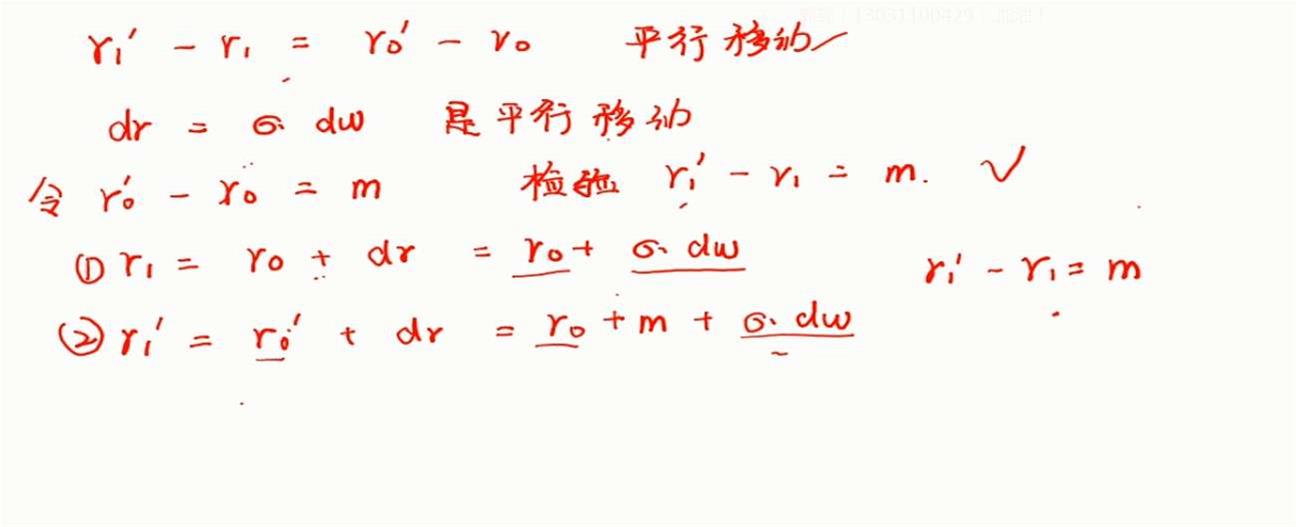 r₁′ − r₁ = r₀′ − r₀ 平行移动
dr = σ· dw 是平行移动
令 r₀′ − r₀ = m 检验 r₁′ − r₁ = m. √
① r₁ = r₀ + dr = r₀ + σ· dw r₁′ − r₁ = m
② r₁′ = r₀′ + dr = r₀ + m + σ· dw